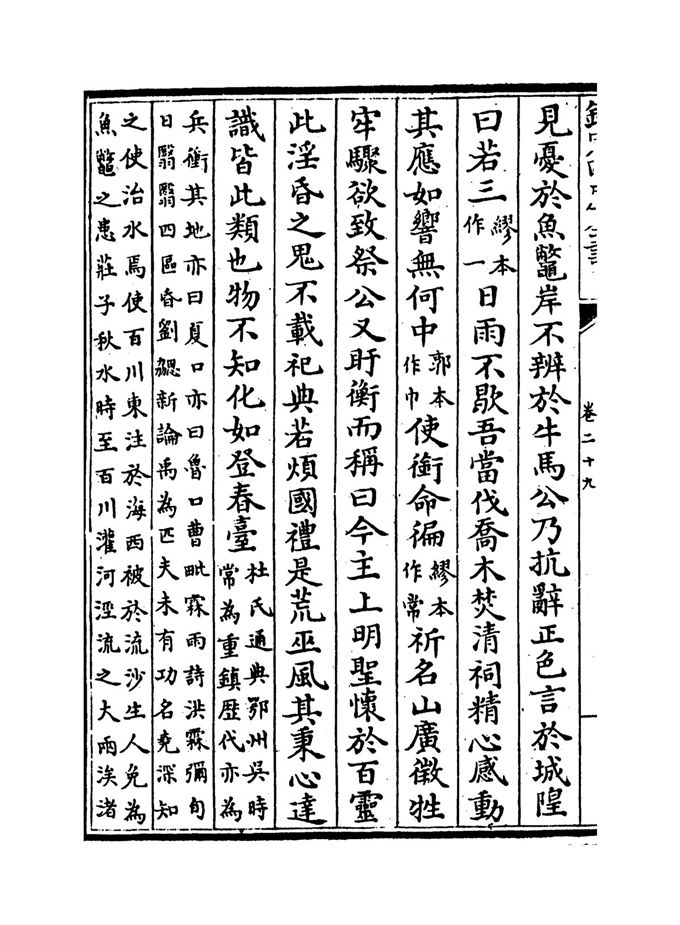 卷二十九
見憂於魚鼈岸不辨於牛馬公乃抗辭正色言於城隍
曰若三繆本作一日雨不歇吾當伐喬木焚清祠精心感動
其應如響無何中郭本作巾使銜命徧繆本作常祈名山廣徵牲
牢驟欲致祭公又盱衡而稱曰今主上明聖懷於百靈
此淫昏之鬼不載祀典若煩國禮是荒巫風其秉心達
識皆此類也物不知化如登春臺杜氏通典鄂州吳時常為重鎮歷代亦為
兵衝其地亦曰夏口亦曰魯口曹毗霖雨詩洪霖彌旬
日翳翳四區昏劉勰新論禹為匹夫未有功名堯深知
之使治水焉使百川東注於海西被於流沙生人免為
魚鼈之患莊子秋水時至百川灌河涇流之大兩涘渚